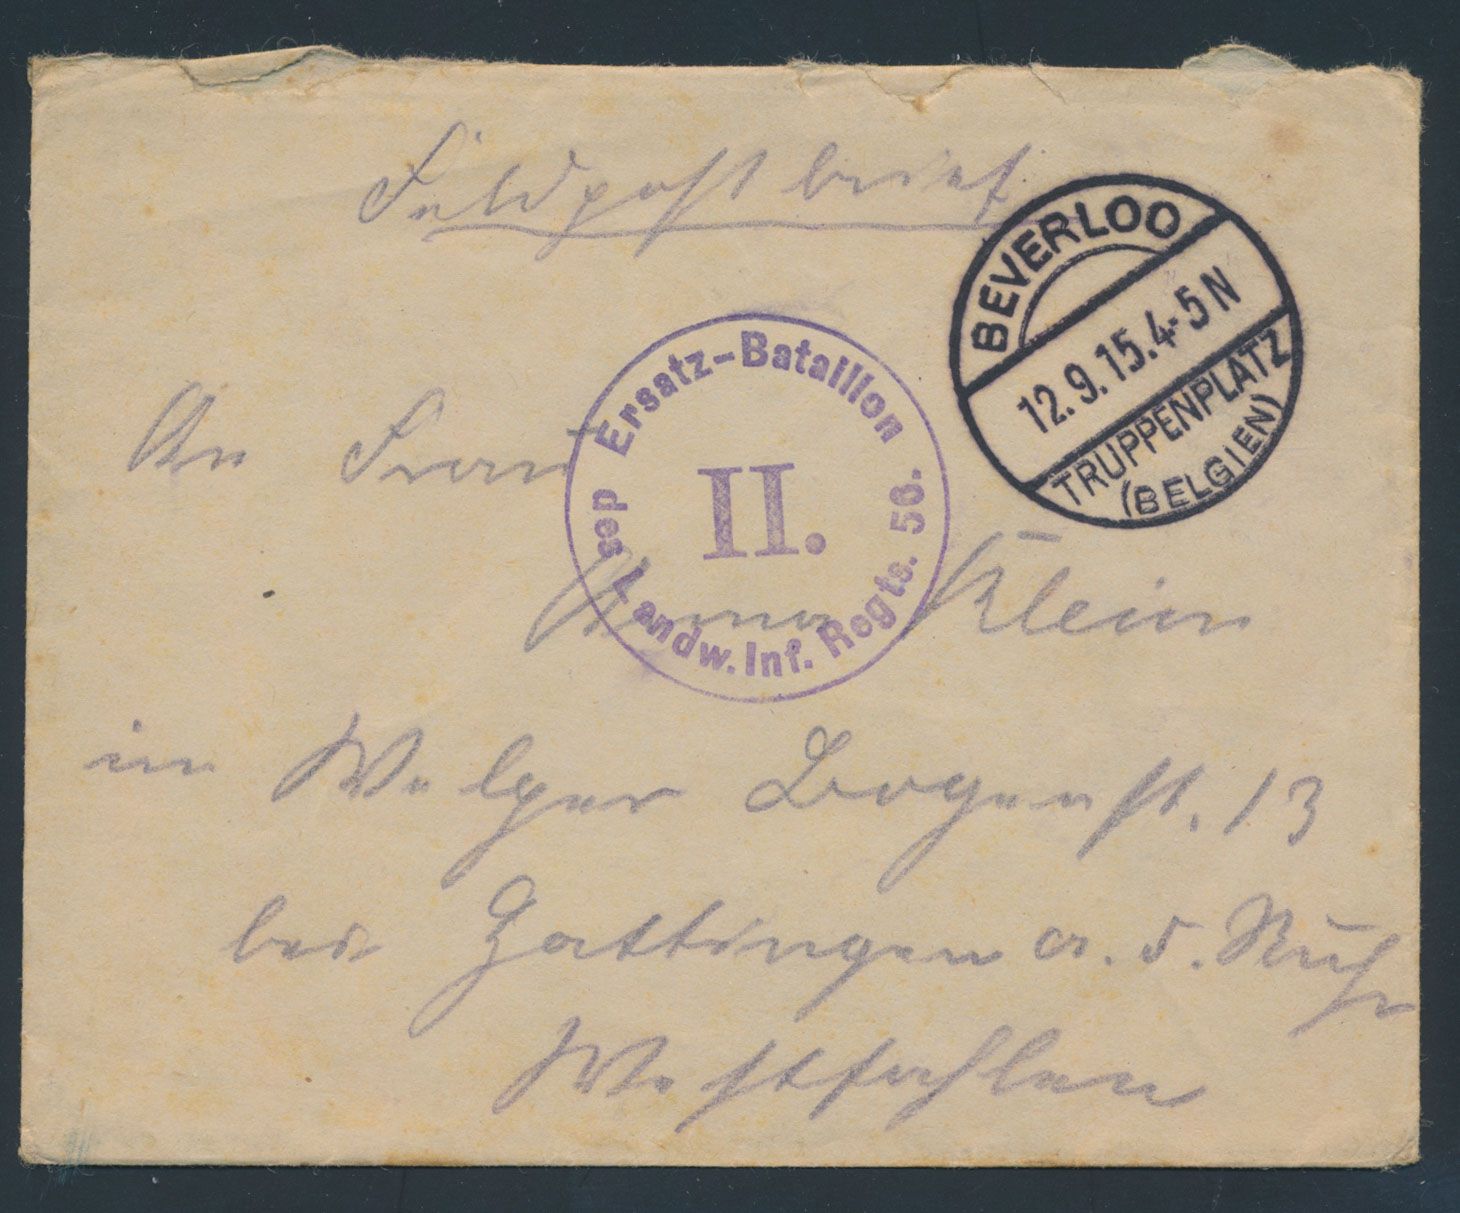 Feldpostbrief
BEVERLOO
12.9.15.4-5N
TRUPPENPLATZ
(BELGIEN)
Ersatz-Bataillon
II.
des Landw. Inf. Regts. 56.
An Frau
Klein
in Welper Bogenst. 13
bei Hattingen a. d. Ruhr
Westfahlen